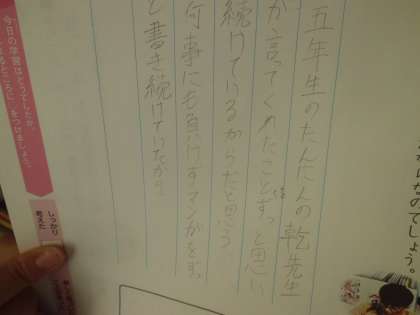 なのでしょう。
五年生のたんにんの乾先生
が言ってくれたことずっと思い
続けているからだと思う。
何事にも負けずマンガをず
と書き続けていたから
今日の学習はどうでしたか。
るところに
をつけましょう。
しっかり
考えた